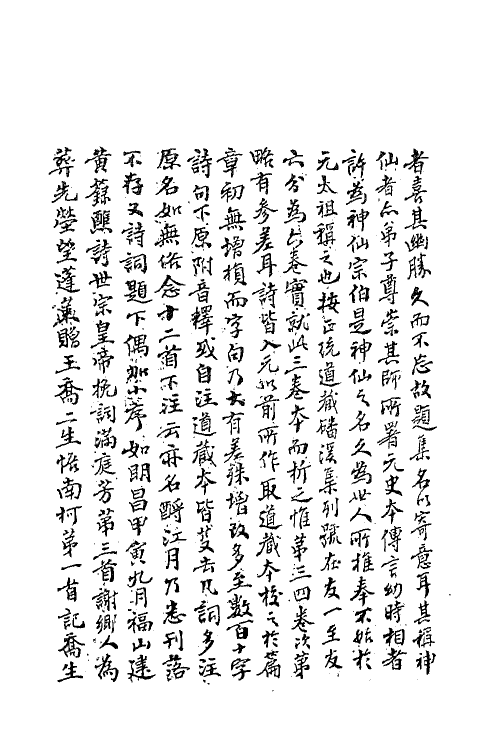 者喜其幽勝久而不忘故題集名以寄意耳其稱神
仙者亦弟子尊崇其師所署元史本傳言幼時相者
許為神仙宗伯是神仙之名久為世人所推奉不始於
元太祖稱之也按正統道藏磻溪集列號在友一至友
六分為六卷實就此三卷本而析之惟第三四卷次第
略有參差耳詩皆入元以前所作取道藏本校之於篇
章初無增損而字句乃大有差殊增改多至數百十字
詩句下原附音釋或自注道藏本皆芟去凡詞多注
原名如無俗念十二首下注云亦名酹江月乃悉刊落
不存又詩詞題下偶加小序如明昌甲寅九月福山建
黃籙醮詩世宗皇帝挽詞滿庭芳第三首謝鄉人為
葬先塋望蓬萊贈王喬二生悟南柯第一首記喬生